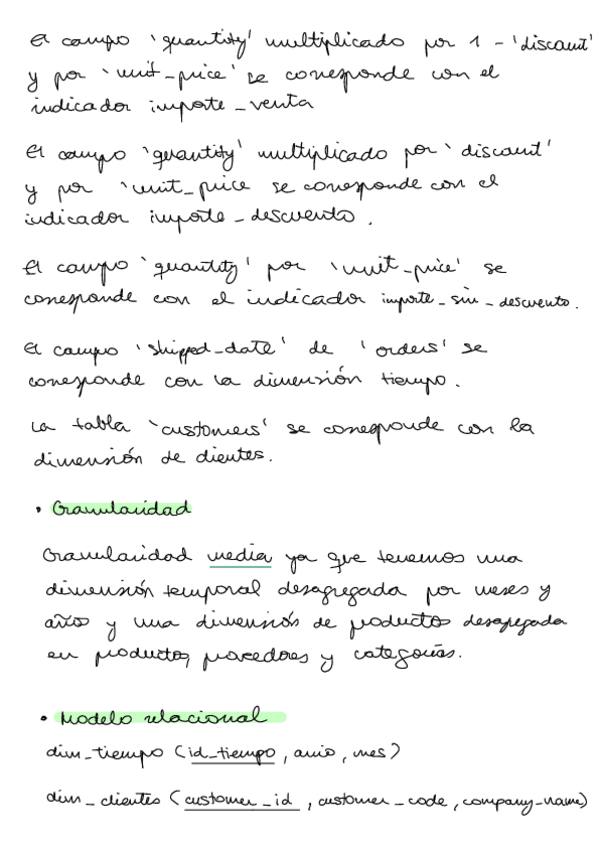 El campo 'quantity' multiplicado por 1 - 'discount'
y por 'unit_price' se corresponde con el
indicador importe_venta
El campo 'quantity' multiplicado por 'discount'
y por 'unit_price se corresponde con el
indicador importe_descuento.
El campo 'quantity' por 'unit_price' se
corresponde con el indicador importe_sin_descuento.
El campo 'shipped_date' de 'orders' se
corresponde con la dimensión tiempo.
La tabla 'customers' se corresponde con la
dimensión de clientes.
• Granularidad
Granularidad media ya que tenemos una
dimensión temporal desagregada por meses y
años y una dimensión de productos desagregada
en productos, proveedores y categorías.
• Modelo relacional
dim_tiempo (id_tiempo, anio, mes)
dim_clientes (customer_id, customer_code, company_name)